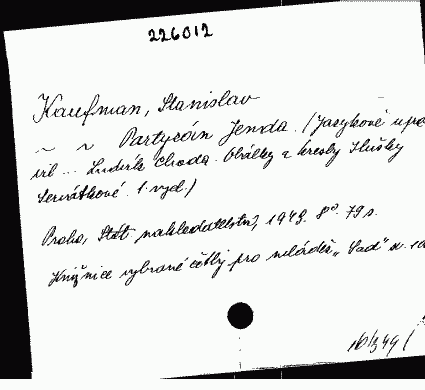 226012
Kaufman, Stanislav
~ ~ Partyzán Jenda. (Jazykově upra
vil ... Ludvík Choda. Obálky a kresby Elušky
Servátkové. 1. vyd.)
Praha, Stát. nakladatelství, 1949. 8°. 79 s.
Knižnice vybrané četby pro mládež „Sad" sv. 10